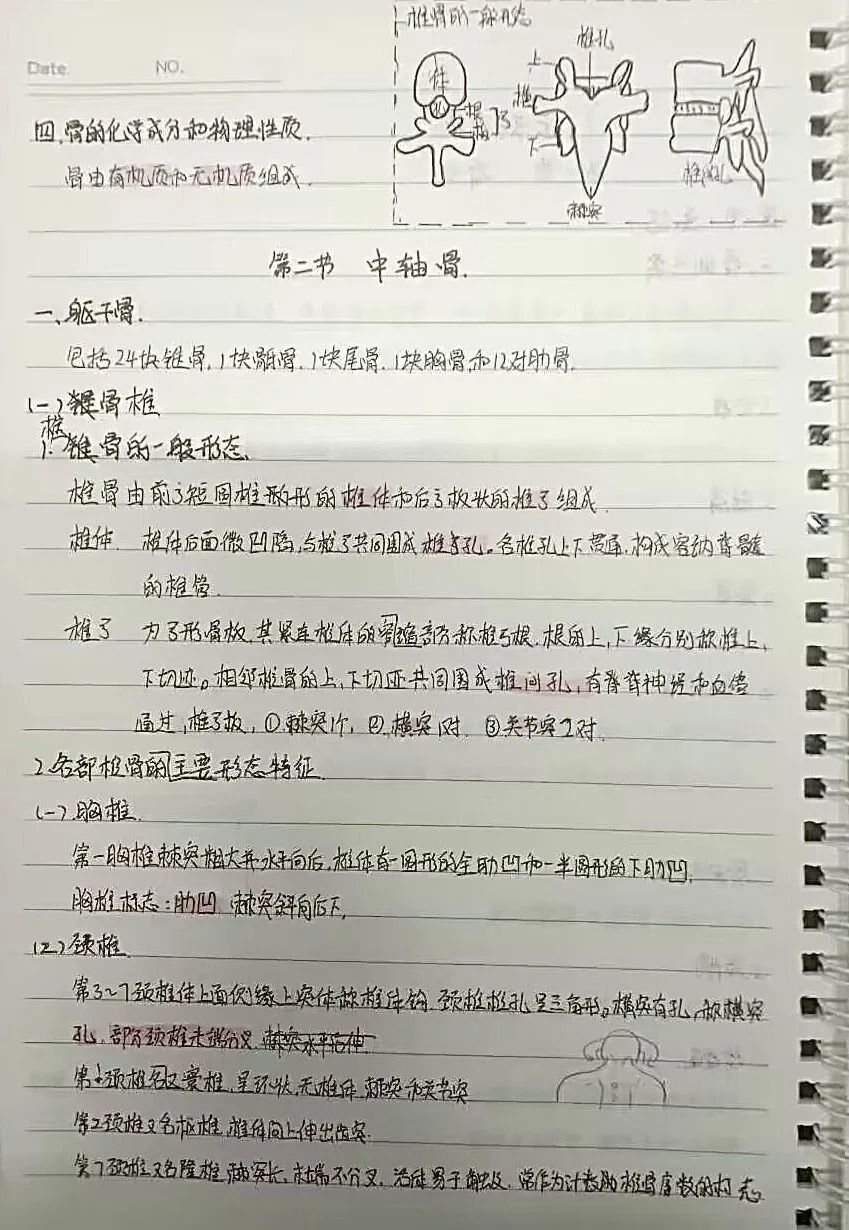 Date.
NO.
椎骨的一般形态
体
孔
根
板
弓
椎孔
上
横
下
棘突
椎间孔
四、骨的化学成分和物理性质.
骨由有机质和无机质组成.
第二节 中轴骨.
一、躯干骨.
包括24块锥骨、1块骶骨、1块尾骨、1块胸骨和12对肋骨.
(一)骨椎
椎
1.骨的一般形态.
椎骨由前方短圆形的椎体和后方板状的椎弓组成.
椎体. 椎体后面微凹陷,与椎弓共同围成椎孔。各椎孔上下贯通,构成容纳脊髓
的椎管.
椎弓 为弓形骨板,其紧连椎体的缩窄部分称椎弓根.根的上,下缘分别称椎上,
下切迹。相邻椎骨的上,下切迹共同围成椎间孔,有脊神经和血管
通过,椎弓板,①棘突1个,②横突1对. ③关节突2对.
2.各部椎骨的主要形态特征
(一)胸椎.
第一胸椎棘突粗大并水平向后,椎体有一圆形的全肋凹和一半圆形的下肋凹.
胸椎标志:肋凹 棘突斜向后下.
(二)颈椎
第3~7颈椎体上面侧缘上突体称椎体钩.颈椎椎孔呈三角形。横突有孔,称横突
孔.部分颈椎末端分叉.棘突水平后伸.
第1颈椎名又寰椎,呈环状,无椎体 棘突和关节突
第2颈椎又名枢椎,椎体向上伸出齿突.
第7颈椎又名隆椎,棘突长,末端不分叉,活体易于触及,常作为计数椎骨序数的标志.